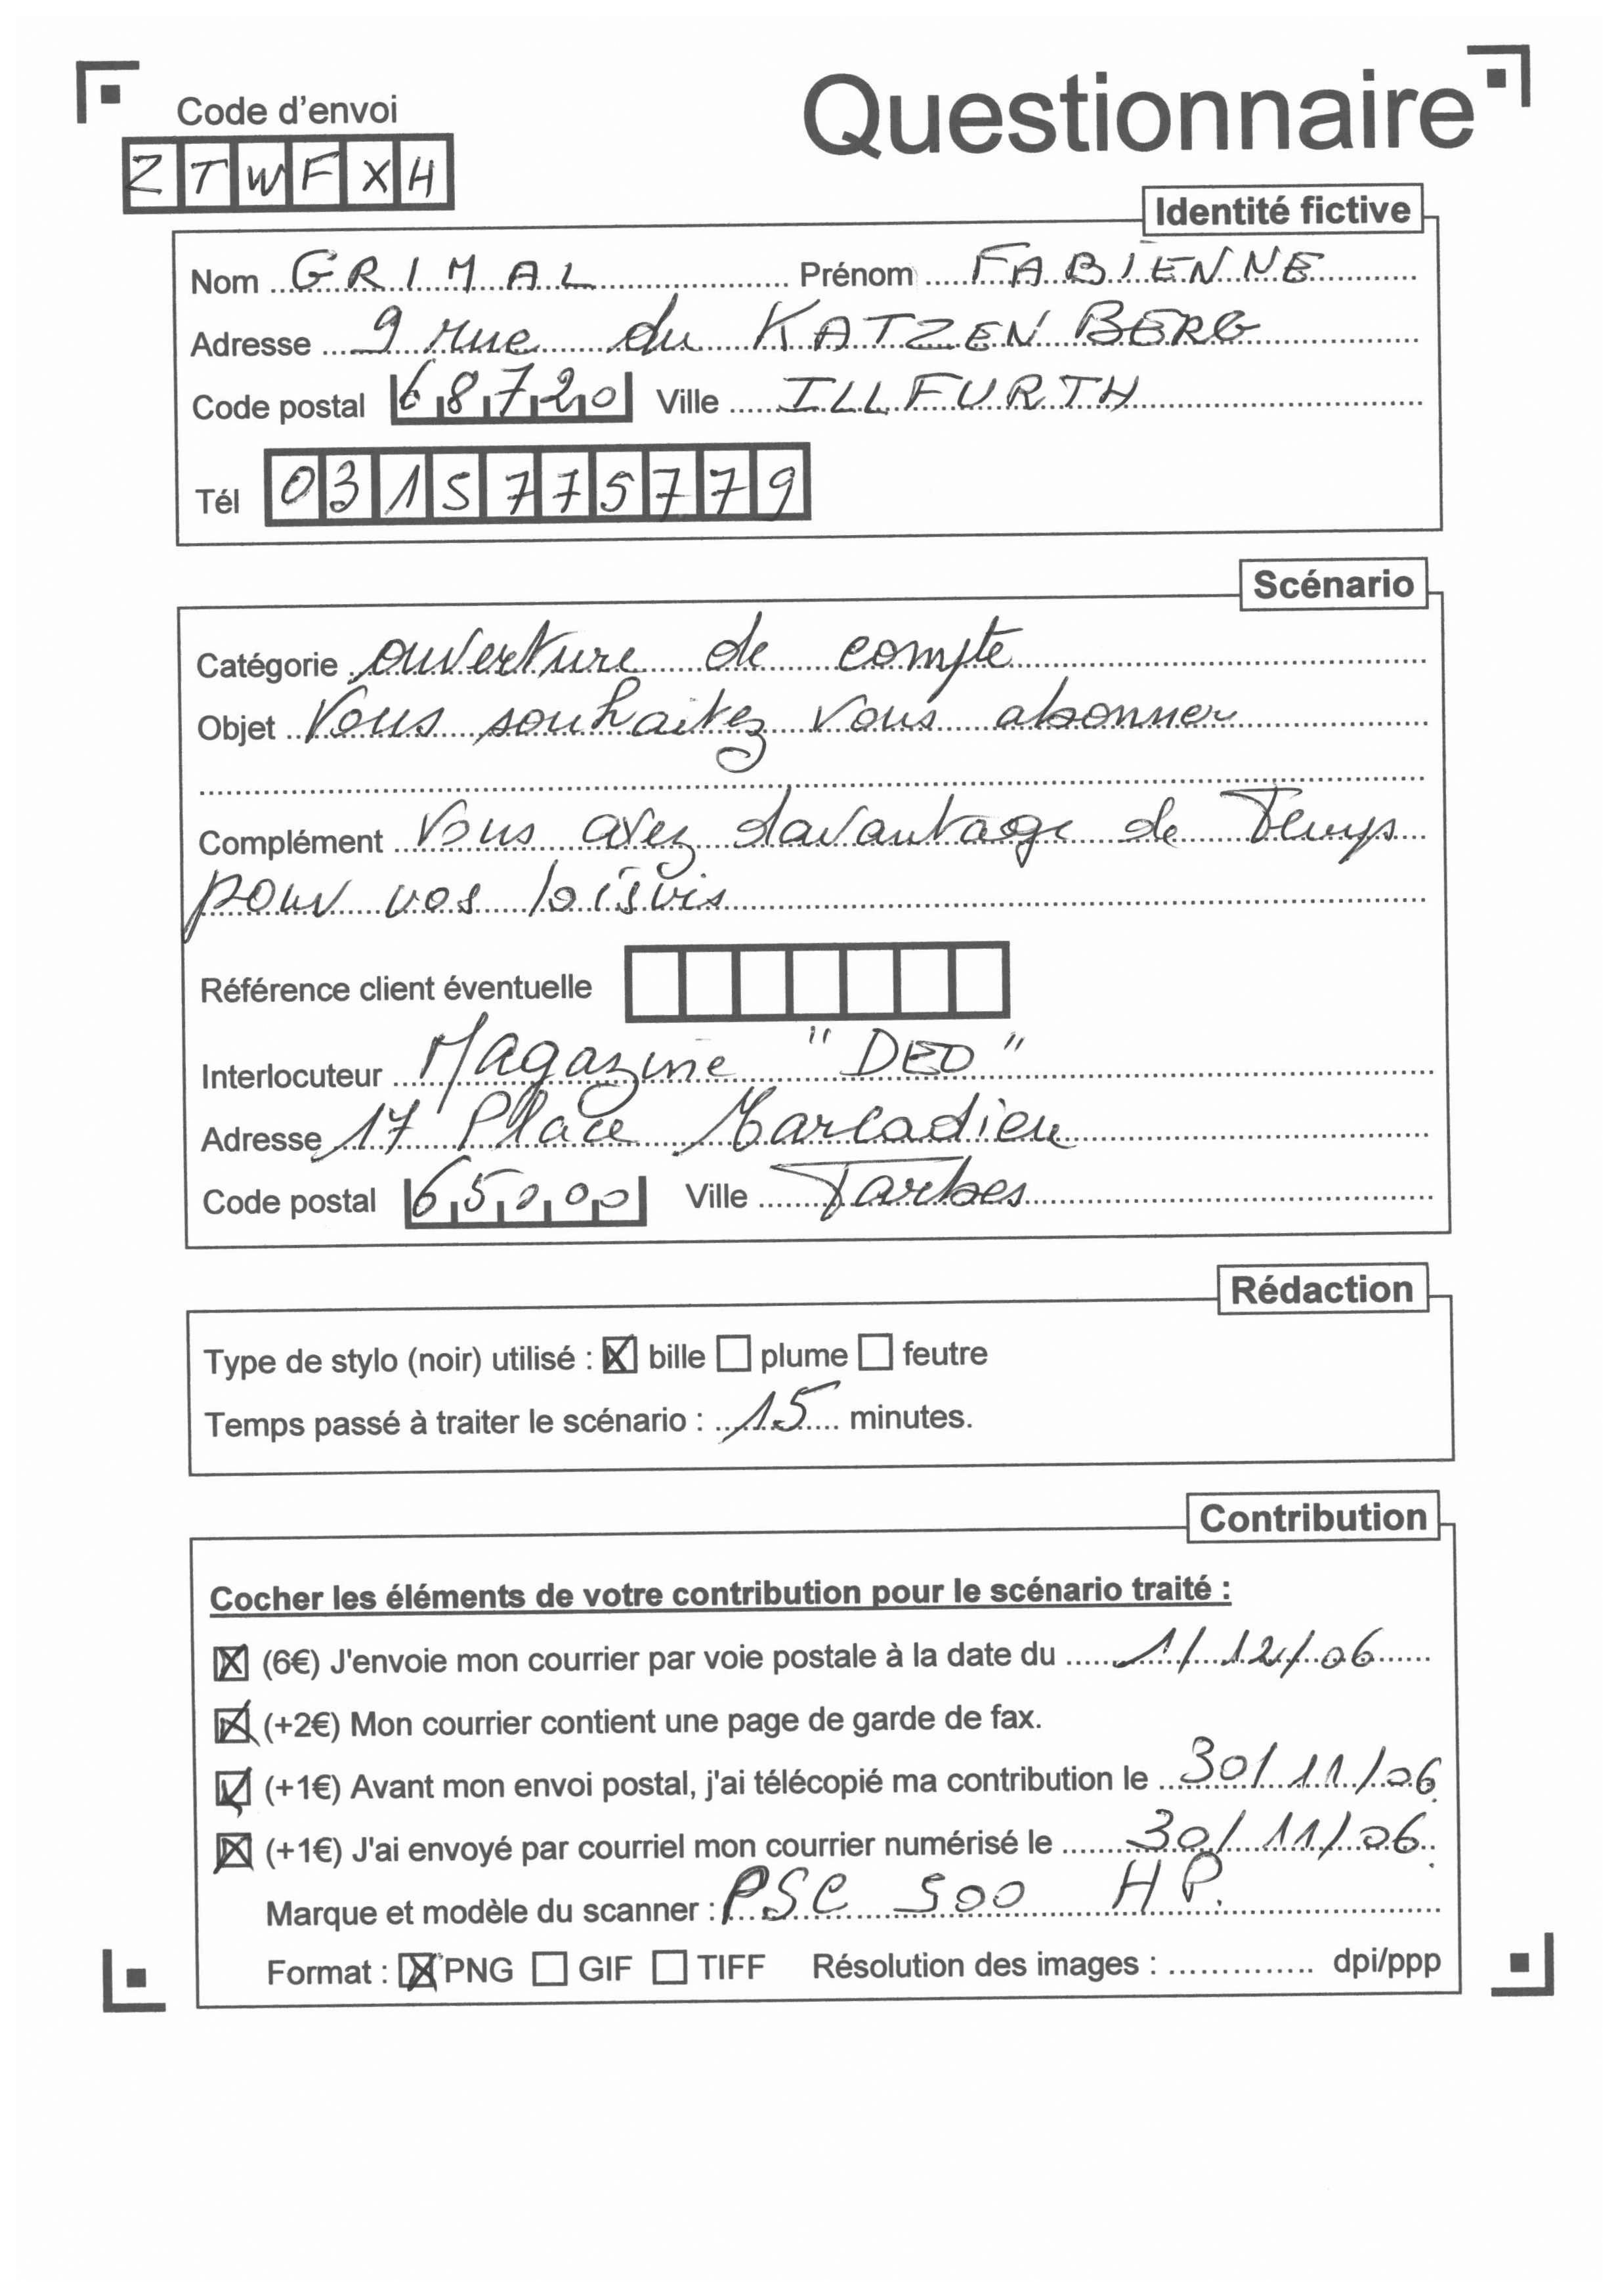 Code d'envoi
Questionnaire
ZTWFXH
Identité fictive
Nom GRIMAL Prénom FABIENNE
Adresse 9 rue du KATZEN BERG
Code postal 68720 Ville ILLFURTH
Tél 0315775779
Scénario
Catégorie ouverture de compte
Objet Vous souhaitez vous abonner
Complément Vous avez davantage de Temps
pour vos loisirs
Référence client éventuelle
Interlocuteur Magazine " DEO "
Adresse 17 Place Marcadieu
Code postal 65000 Ville Tarbes
Rédaction
Type de stylo (noir) utilisé : bille plume feutre
Temps passé à traiter le scénario : 15 minutes.
Contribution
Cocher les éléments de votre contribution pour le scénario traité :
(6€) J'envoie mon courrier par voie postale à la date du 1/12/06
(+2€) Mon courrier contient une page de garde de fax.
(+1€) Avant mon envoi postal, j'ai télécopié ma contribution le 30/11/06
(+1€) J'ai envoyé par courriel mon courrier numérisé le 30/11/06
Marque et modèle du scanner : PSC 500 HP.
Format : PNG GIF TIFF Résolution des images : dpi/ppp